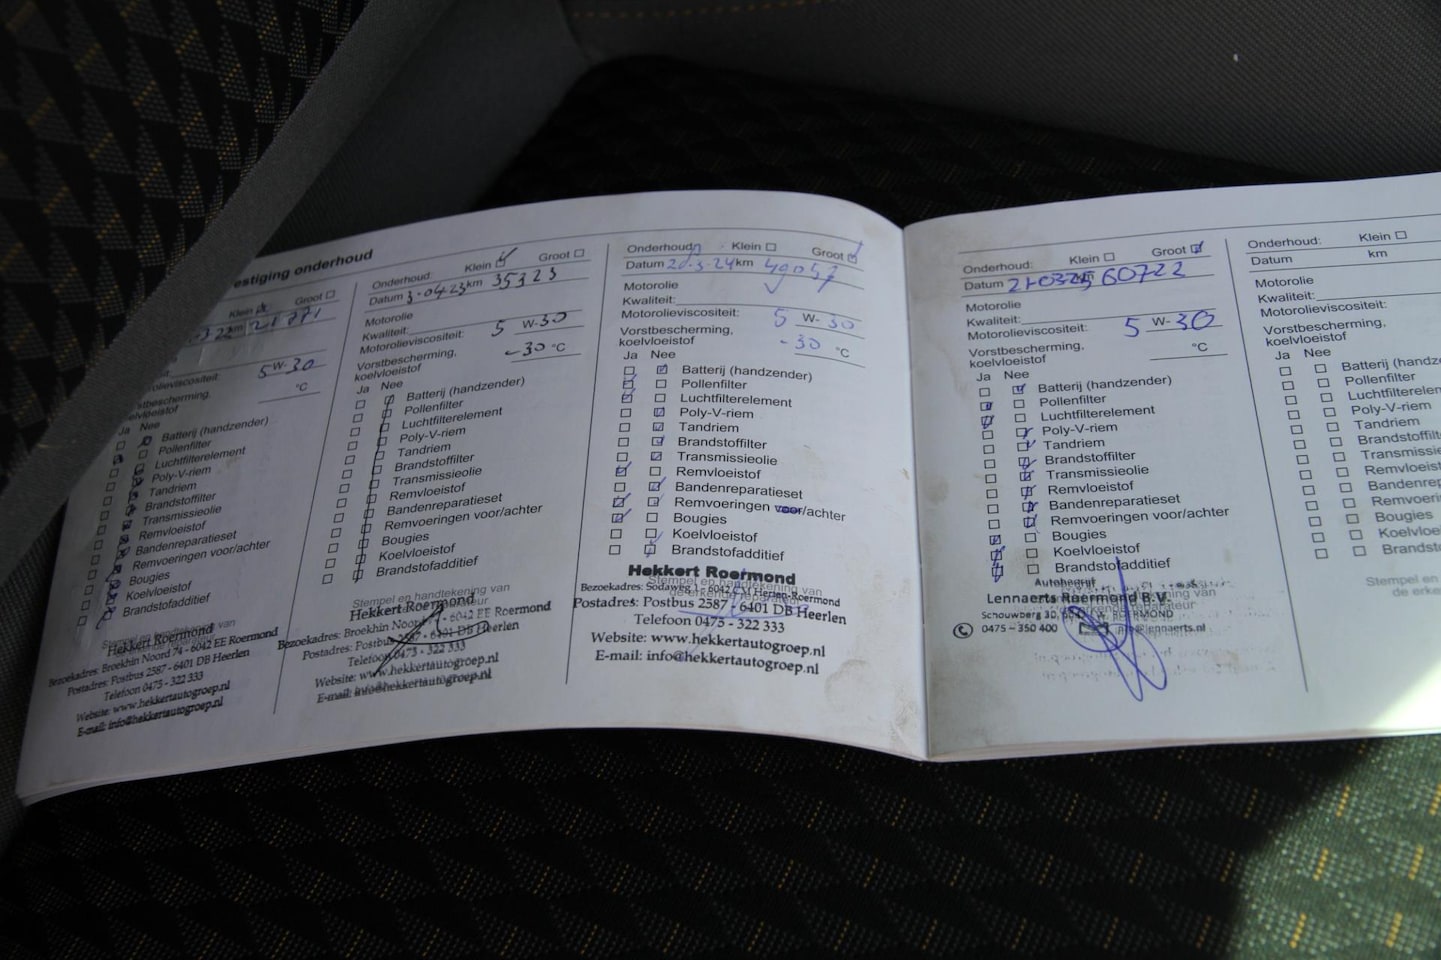 estiging onderhoud
Klein Groot
5 W-30
°C
Ja Nee
Batterij (handzender)
Pollenfilter
Luchtfilterelement
Poly-V-riem
Tandriem
Brandstoffilter
Transmissieolie
Remvloeistof
Bandenreparatieset
Remvoeringen voor/achter
Bougies
Koelvloeistof
Brandstofadditief
Hekkert Roermond
Bezoekadres: Broekhin Noord 74 - 6042 EE Roermond
Postadres: Postbus 2587 - 6401 DB Heerlen
Telefoon 0475 - 322 333
Website: www.hekkertautogroep.nl
E-mail: info@hekkertautogroep.nl
Onderhoud: Klein Groot
Datum 3-04-23 km 35323
Motorolie
Kwaliteit:
Motorolieviscositeit: 5 W-30
Vorstbescherming, -30 °C
koelvloeistof
Ja Nee
Batterij (handzender)
Pollenfilter
Luchtfilterelement
Poly-V-riem
Tandriem
Brandstoffilter
Transmissieolie
Remvloeistof
Bandenreparatieset
Remvoeringen voor/achter
Bougies
Koelvloeistof
Brandstofadditief
Stempel en handtekening van
Hekkert Roermond
Bezoekadres: Broekhin Noord - 6042 EE Roermond
Postadres: Postbus 2587 - 6401 DB Heerlen
Telefoon 0475 - 322 333
Website: www.hekkertautogroep.nl
E-mail: info@hekkertautogroep.nl
Onderhoud: Klein Groot
Datum 20-3-24 km 49047
Motorolie
Kwaliteit:
Motorolieviscositeit: 5 W-30
Vorstbescherming, -30 °C
koelvloeistof
Ja Nee
Batterij (handzender)
Pollenfilter
Luchtfilterelement
Poly-V-riem
Tandriem
Brandstoffilter
Transmissieolie
Remvloeistof
Bandenreparatieset
Remvoeringen voor/achter
Bougies
Koelvloeistof
Brandstofadditief
Hekkert Roermond
Stempel en handtekening van
Bezoekadres: Sodaweg 1 - 6042 Roermond
Postadres: Postbus 2587 - 6401 DB Heerlen
Telefoon 0475 - 322 333
Website: www.hekkertautogroep.nl
E-mail: info@hekkertautogroep.nl
Onderhoud: Klein Groot
Datum 60722
Motorolie
Kwaliteit:
Motorolieviscositeit: 5 W-30
Vorstbescherming, °C
koelvloeistof
Ja Nee
Batterij (handzender)
Pollenfilter
Luchtfilterelement
Poly-V-riem
Tandriem
Brandstoffilter
Transmissieolie
Remvloeistof
Bandenreparatieset
Remvoeringen voor/achter
Bougies
Koelvloeistof
Brandstofadditief
Autobedrijf
Lennaerts Roermond B.V.
Schouwberg 3D, ROERMOND
0475 - 350 400 info@lennaerts.nl
Onderhoud: Klein
Datum km
Motorolie
Kwaliteit:
Motorolieviscositeit:
Vorstbescherming,
koelvloeistof
Ja Nee
Batterij (handze
Pollenfilter
Luchtfilterelem
Poly-V-riem
Tandriem
Brandstoffilt
Transmissie
Remvloeisto
Bandenrep
Remvoerin
Bougies
Koelvloe
Brandst
Stempel en
de erke